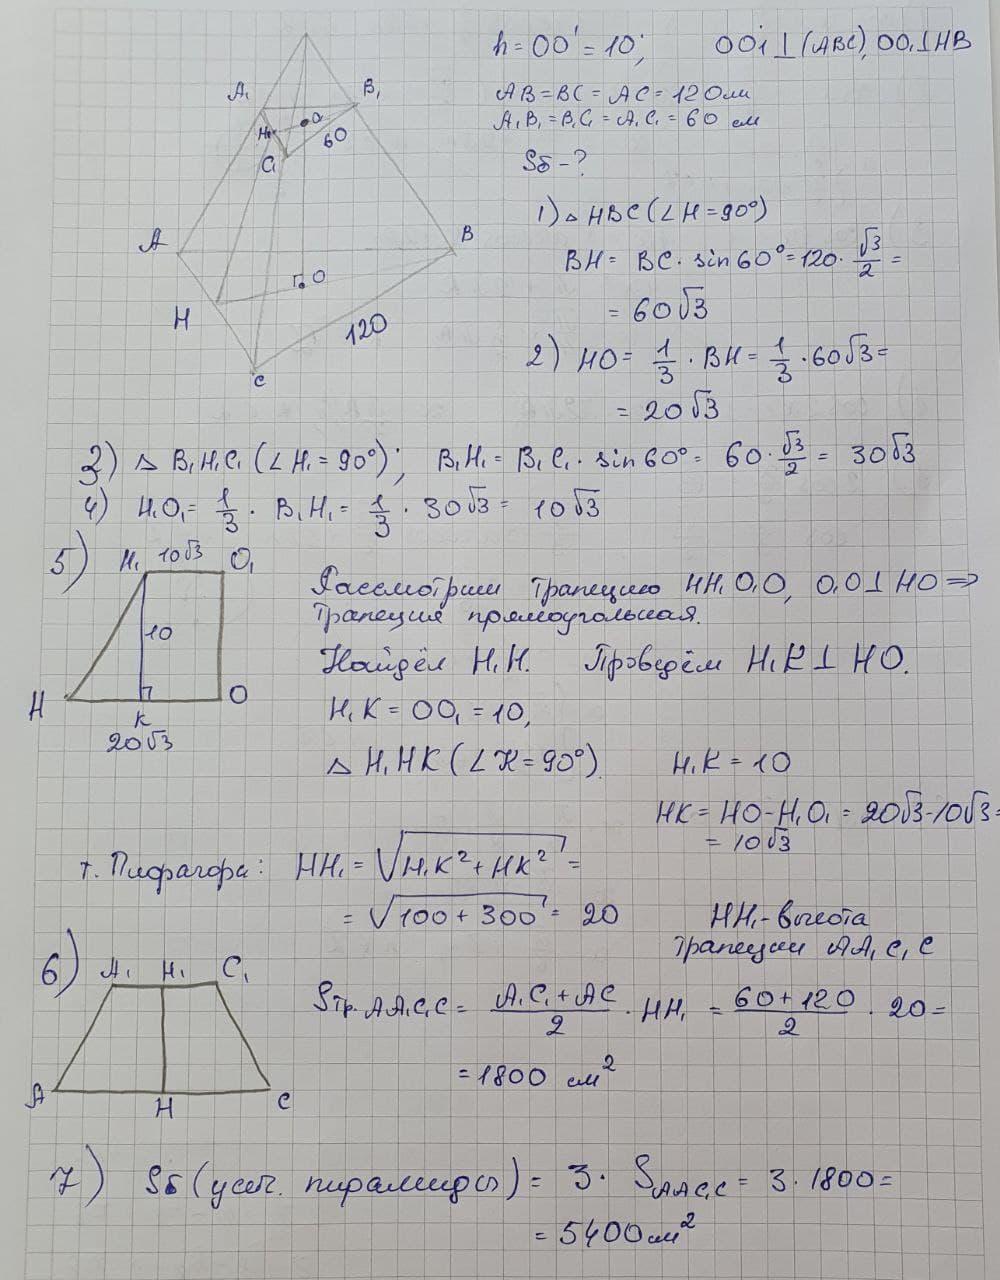 h = OO' = 10; OO1 ⊥ (ABC), OO1 ⊥ HB
AB = BC = AC = 120 см
A1B1 = B1C1 = A1C1 = 60 см
Sб - ?
A1
B1
H1
O
60
C1
A
B
H
O
120
C
1) △ HBC (∠H = 90°)
BH = BC · sin 60° = 120 · √3/2 =
= 60√3
2) HO = 1/3 · BH = 1/3 · 60√3 =
= 20√3
3) △ B1H1C1 (∠H1 = 90°); B1H1 = B1C1 · sin 60° = 60 · √3/2 = 30√3
4) H1O1 = 1/3 · B1H1 = 1/3 · 30√3 = 10√3
5) H1 10√3 O1
10
H K O
20√3
Рассмотрим трапецию HH1O1O, O1O ⊥ HO ⇒
трапеция прямоугольная.
Найдём H1H. Проведём H1K ⊥ HO.
H1K = OO1 = 10,
△ H1HK (∠K = 90°) H1K = 10
HK = HO - H1O1 = 20√3 - 10√3 =
= 10√3
т. Пифагора: HH1 = √(H1K² + HK²) =
= √(100 + 300) = 20
HH1 - высота
трапеции AA1C1C
6) A1 H1 C1
A H C
Sтр. AA1C1C = (A1C1 + AC)/2 · HH1 = (60 + 120)/2 · 20 =
= 1800 см²
7) Sб (усеч. пирамиды) = 3 · SAA1C1C = 3 · 1800 =
= 5400 см²